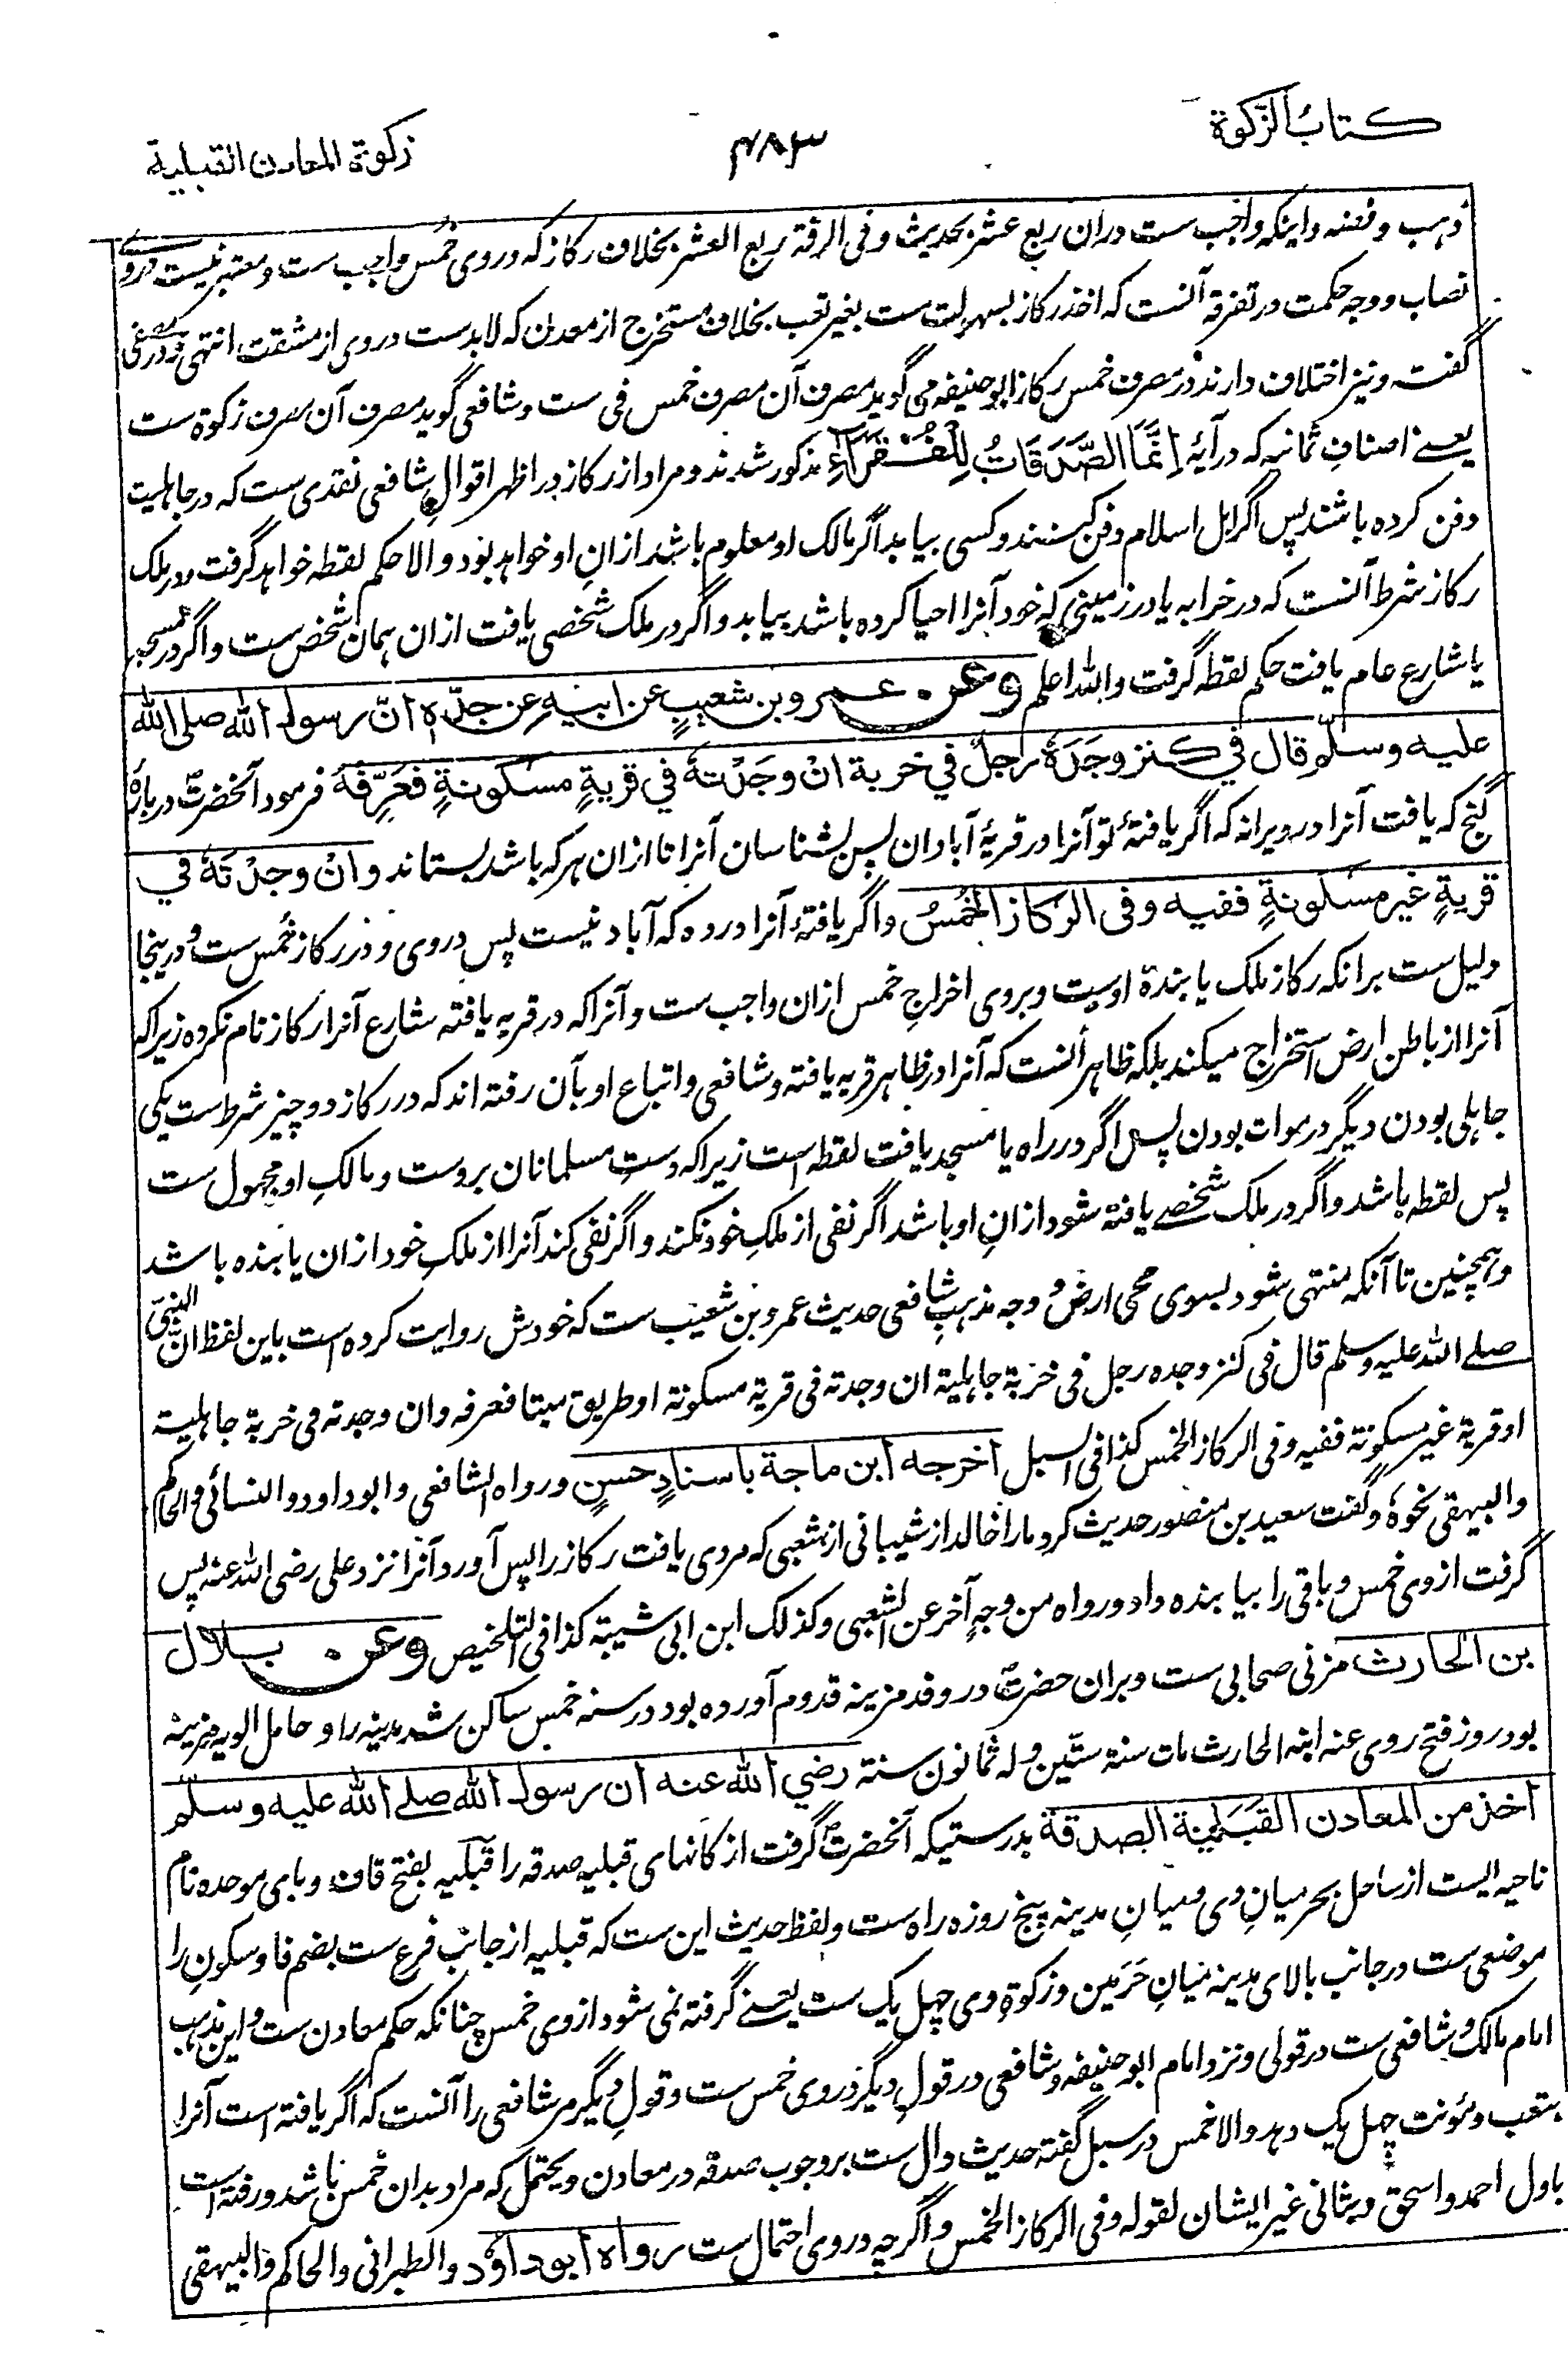 كتاب الزكوة
۴۸۳
زكوة المعادن القبلية
ذہب وفضہ واینکہ واجب ست دران ربع عشر بحدیث وفی الرقۃ ربع العشر بخلاف رکاز کہ دروی خُمس واجب ست ومعتبر نیست دروے
نصاب ووجہ حکمت در تفرقہ آنست کہ اخذ رکاز بسہولت ست بغیر تعب بخلاف مستخرج از معدن کہ لابدست دروی از مشقت انتہی ودر مصفی
گفتہ ونیز اختلاف دارند در مصرف خمس رکاز ابو حنیفہ می گوید مصرف آن مصرف خمس فی ست وشافعی گوید مصرف آن مصرف زکوۃ ست
یعنے اصناف ثمانیہ کہ در آیۂ اِنَّمَا الصَّدَقَاتُ لِلْفُقَرَآءِ مذکور شدند ومراد از رکاز در اظہر اقوالِ شافعی نقدی ست کہ در جاہلیت
دفن کردہ باشند پس اگر اہل اسلام دفن کنند وکسی بیابد اگر مالک او معلوم باشد ازانِ او خواہد بود والا حکم لقطہ خواہد گرفت ودر ملک
رکاز شرط آنست کہ در خرابہ یا در زمینی کہ خود آنرا احیا کردہ باشد بیابد واگر در ملک شخصی یافت ازان ہمان شخص ست واگر در مسجد
یا شارع عام یافت حکم لقطہ گرفت واللہ اعلم وعن عمرو بن شعيبٍ عن ابيه عن جدّه انّ رسول الله صلى الله
عليه وسلّم قال في كنز وجَدَهٗ رجلٌ في خربة انْ وجَدْتهٗ في قريةٍ مسكونةٍ فعَرِّفْهُ فرمود آنحضرتؐ دربارۂ
گنج کہ یافت آنرا در ویرانہ کہ اگر یافتۂ تو آنرا در قریۂ آبادان پس بشناسان آنرا تا ازان ہر کہ باشد بستاند وانْ وجدْتهٗ في
قريةٍ غيرِ مسكونةٍ ففيه وفى الركاز الخُمُسُ واگر یافتۂ آنرا در دہ کہ آباد نیست پس دروی ودر رکاز خُمس ست ودرینجا
دلیل ست برانکہ رکاز ملک یابندۂ اوست وبروی اخراجِ خمس ازان واجب ست وآنرا کہ در قریہ یافتہ شارع آنرا رکاز نام نکردہ زیراکہ
آنرا از باطن ارض استخراج میکند بلکہ ظاہر آنست کہ آنرا در ظاہر قریہ یافتہ وشافعی واتباع او بآن رفتہ اند کہ در رکاز دو چیز شرط ست یکی
جاہلی بودن دیگر در موات بودن پس اگر در راہ یا مسجد یافت لقطہ است زیراکہ دستِ مسلمانان بروست ومالکِ او مجہول ست
پس لقطہ باشد واگر در ملک شخصے یافتہ شود ازانِ او باشد اگر نفی از ملکِ خود نکند واگر نفی کند آنرا از ملکِ خود ازان یابندہ باشد
وہمچنین تا آنکہ منتہی شود بسوی محی ارض ووجہ مذہب شافعی حدیث عمرو بن شعیب ست کہ خودش روایت کردہ است باین لفظ انّ النبیّ
صلے اللہ علیہ وسلم قال فی کنز وجدہ رجل فی خربۃ جاہلیۃ ان وجدتہ فی قریۃ مسکونۃ او طریق میتا فعرفہ وان وجدتہ فی خربۃ جاہلیۃ
او قریۃ غیر مسکونۃ ففیہ وفی الرکاز الخمس کذا فی السبل اخرجه ابن ماجة باسنادٍ حسنٍ ورواہ الشافعی وابوداود والنسائی والحاکم
والبیہقی نحوہٗ وگفت سعید بن منصور حدیث کرد مارا خالد از شیبانی از شعبی کہ مردی یافت رکاز را پس آورد آنرا نزد علی رضی اللہ عنہ پس
گرفت ازوی خمس وباقی را بیابندہ داد ورواہ من وجہٍ آخر عن الشعبی وکذلک ابن ابی شیبۃ کذا فی التلخیص وعن بلال
بن الحارث مزنی صحابی ست وبران حضرتؐ در وفد مزینہ قدوم آوردہ بود در سنہ خمس ساکن شد مدینہ را وحامل الویہ مزینہ
بود روز فتح روی عنہ ابنہ الحارث مات سنۃ ستّین ولہ ثمانون سنۃ رضي الله عنه ان رسول الله صلے الله عليه وسلم
اخذ من المعادن القَبَلِيّة الصدقة بدرستیکہ آنحضرتؐ گرفت از کانہای قبلیہ صدقہ را قبَلیہ بفتح قاف وبای موحدہ نام
ناحیہ ایست از ساحل بحر میانِ وی ومیانِ مدینہ پنج روزہ راہ ست ولفظ حدیث این ست کہ قبلیہ از جانبِ فرع ست بضم فا وسکونِ را
موضعی ست در جانب بالای مدینہ میانِ حَرَمین وزکوۃِ وی چہل یک ست یعنے گرفتہ نمی شود ازوی خمس چنانکہ حکم معادن ست واین مذہب
امام مالک وشافعی ست در قولی ونزد امام ابو حنیفہ وشافعی در قولِ دیگر دروی خمس ست وقولِ دیگر مر شافعی را آنست کہ اگر یافتہ است آنرا
بتعب ومؤنت چہل یک دہد والا خمس در سبل گفتہ حدیث دال ست بر وجوب صدقہ در معادن ویحتمل کہ مراد بدان خُمس باشد ورفتہ است
باول احمد واسحق وبثانی غیر ایشان لقولہ وفی الرکاز الخمس واگرچہ دروی احتمال ست رواه ابوداؤد والطبرانی والحاکم والبیہقی